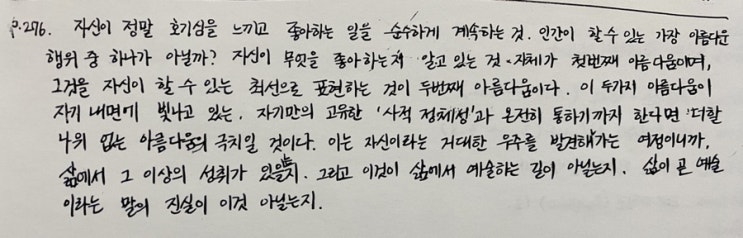 P.276. 자신이 정말 호기심을 느끼고 좋아하는 일을 순수하게 계속하는 것. 인간이 할 수 있는 가장 아름다운
행위 중 하나가 아닐까? 자신이 무엇을 좋아하는지 알고 있는 것 자체가 첫번째 아름다움이며,
그것을 자신이 할 수 있는 최선으로 표현하는 것이 두번째 아름다움이다. 이 두가지 아름다움이
자기 내면에 빛나고 있는, 자기만의 고유한 '사적 정체성'과 온전히 통하기까지 한다면 더할
나위 없는 아름다움의 극치일 것이다. 이는 자신이라는 거대한 우주를 발견해가는 여정이니까.
삶에서 그 이상의 성취가 있을지. 그리고 이것이 삶에서 예술하는 길이 아닐는지. 삶이 곧 예술
이라는 말의 진실이 이것 아닐는지.